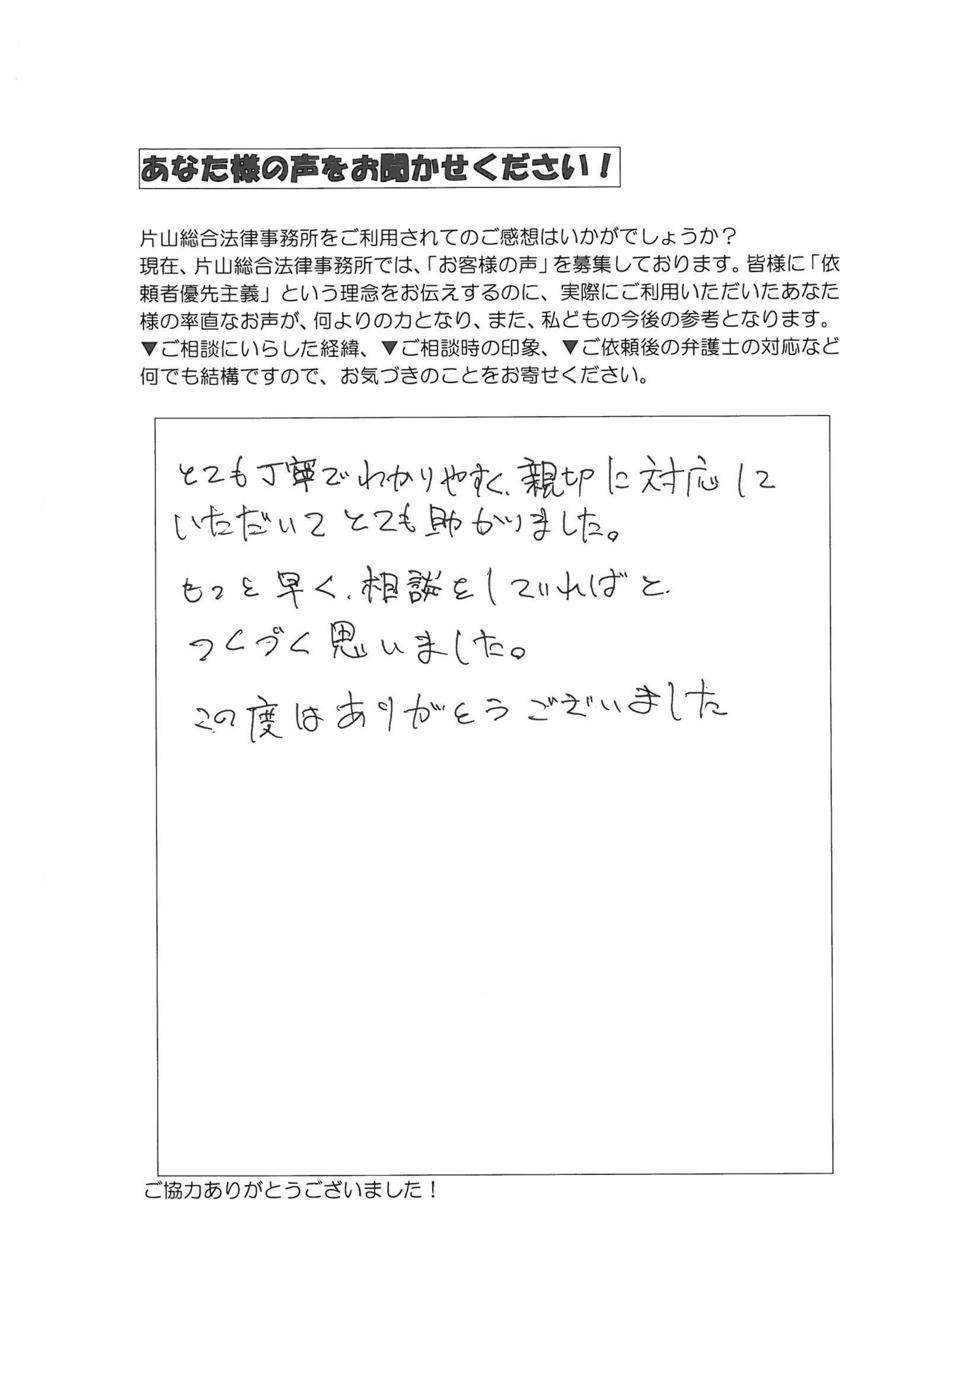 あなた様の声をお聞かせください！
片山総合法律事務所をご利用されてのご感想はいかがでしょうか？
現在、片山総合法律事務所では、「お客様の声」を募集しております。皆様に「依
頼者優先主義」という理念をお伝えするのに、実際にご利用いただいたあなた
様の率直なお声が、何よりの力となり、また、私どもの今後の参考となります。
▼ご相談にいらした経緯、▼ご相談時の印象、▼ご依頼後の弁護士の対応など
何でも結構ですので、お気づきのことをお寄せください。
とても丁寧でわかりやすく、親切に対応して
いただいてとても助かりました。
もっと早く、相談をしていればと、
つくづく思いました。
この度はありがとうございました
ご協力ありがとうございました！